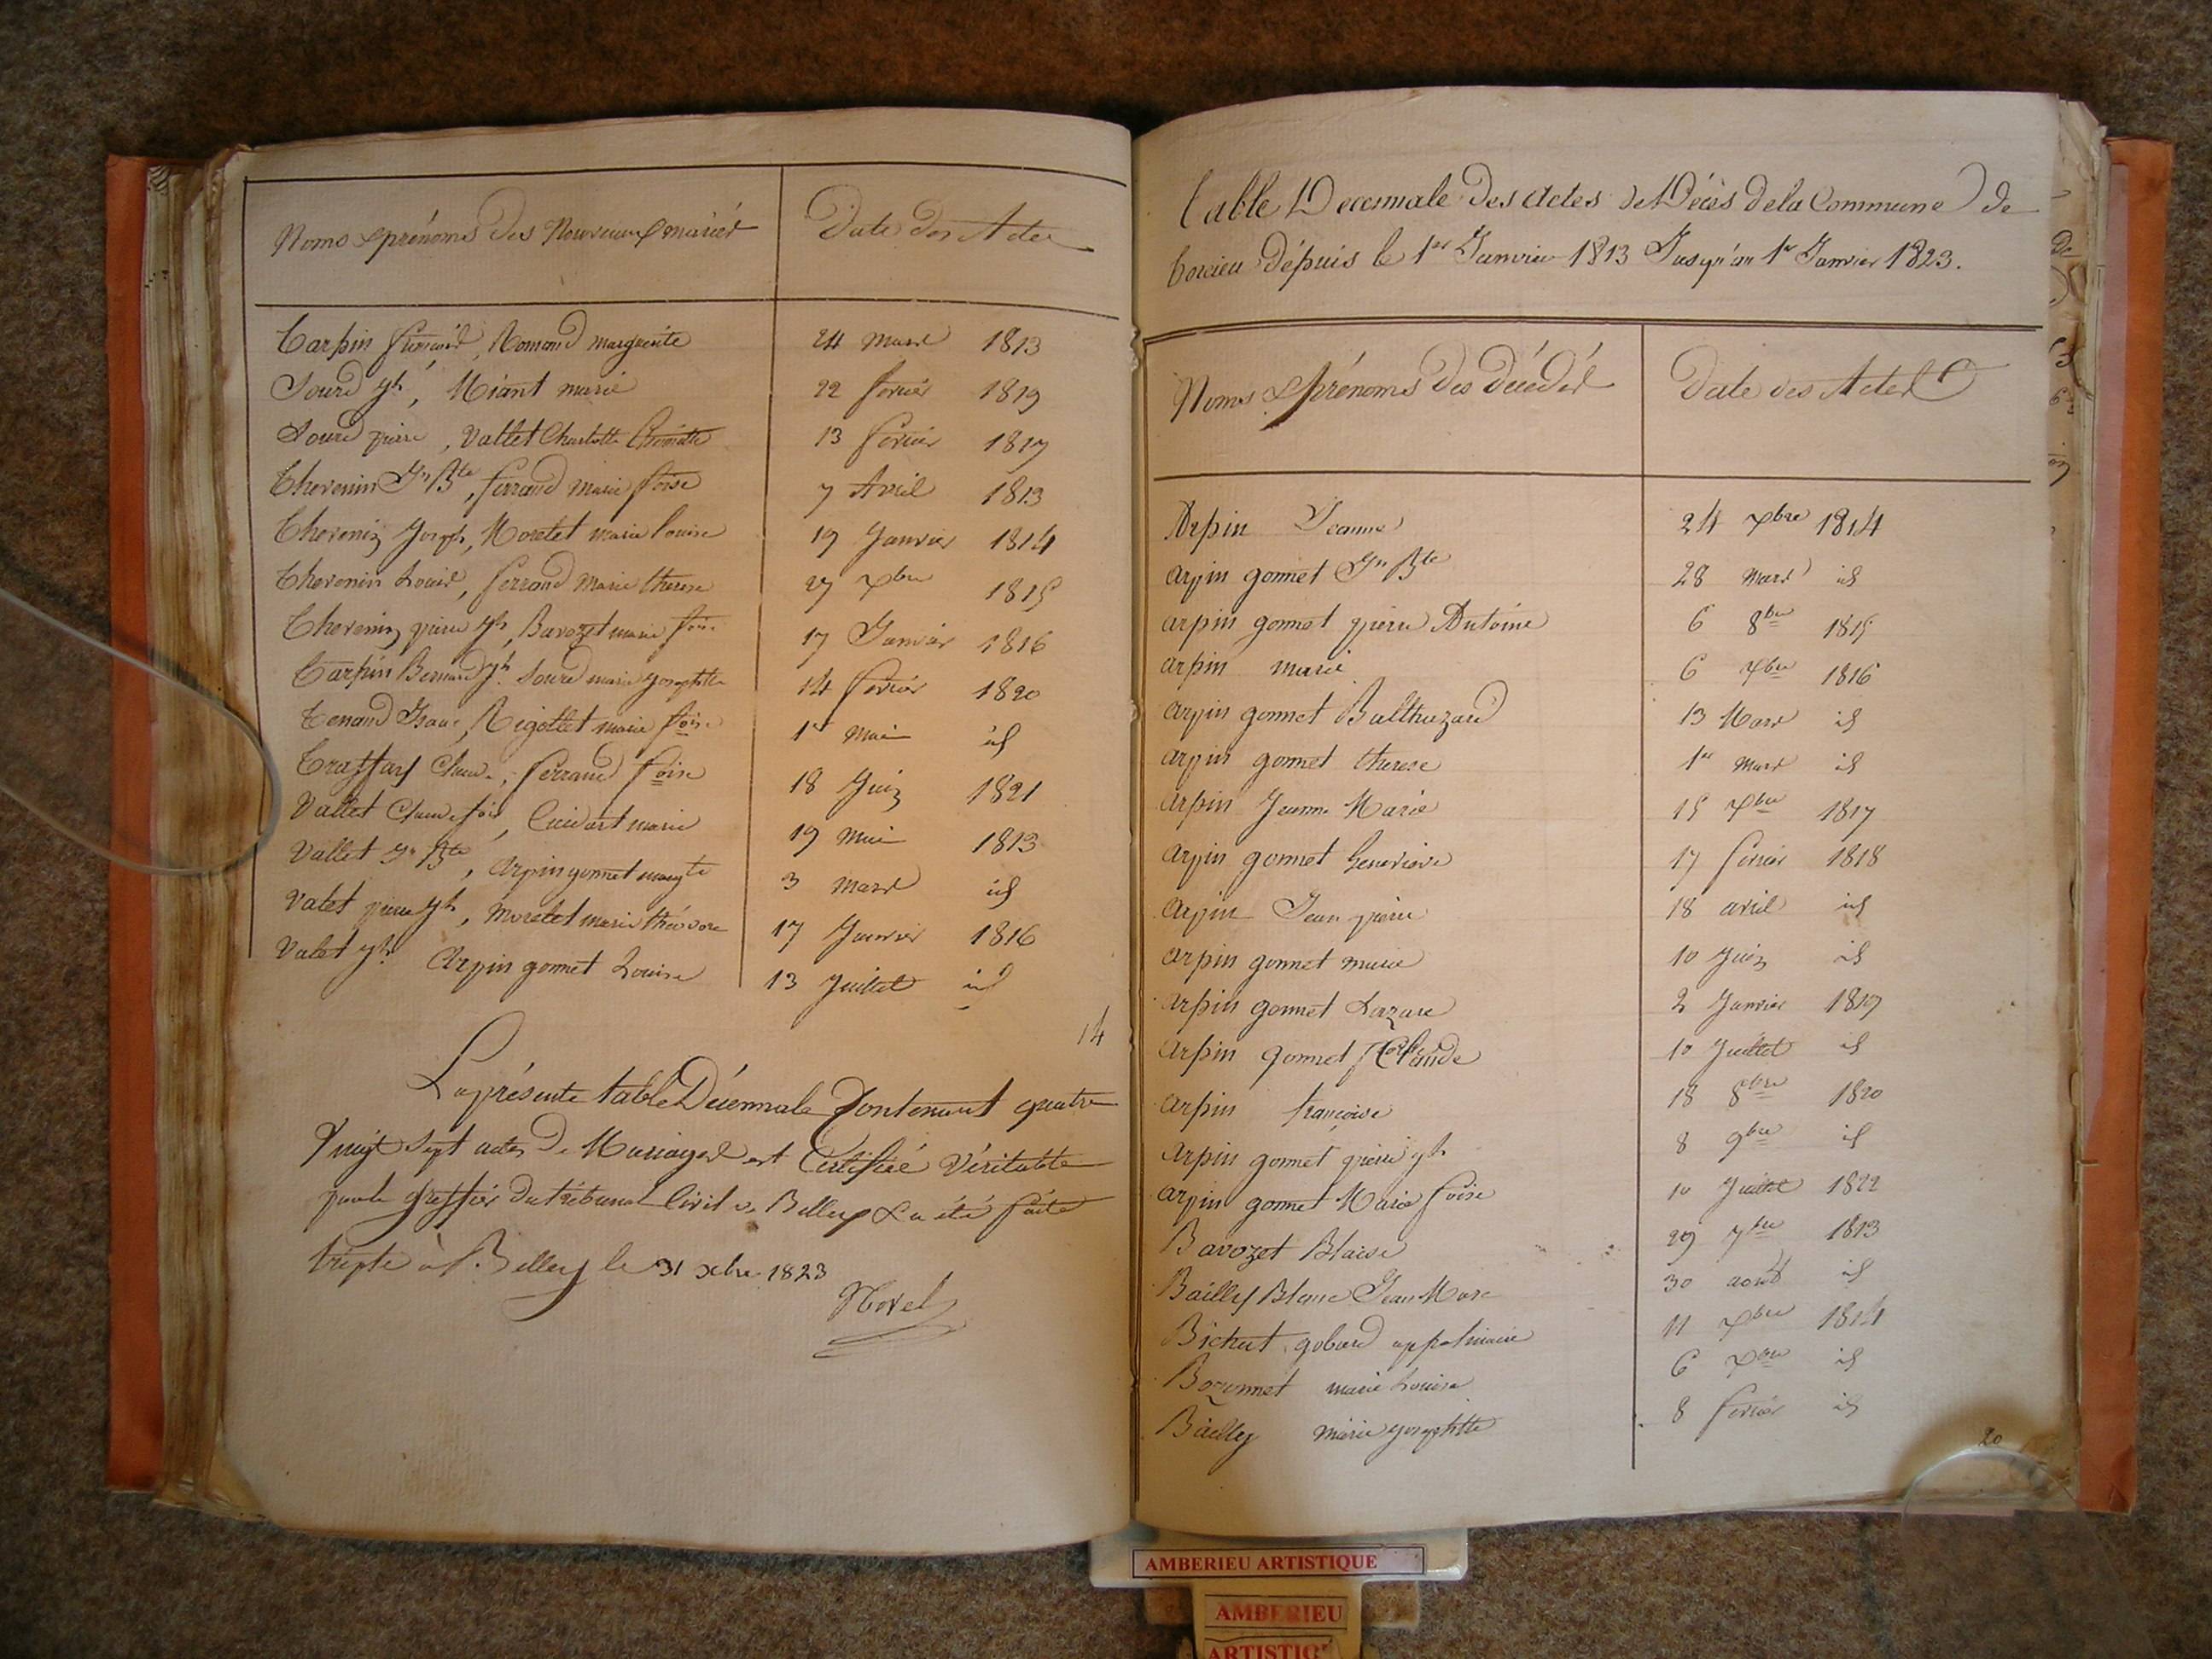 Noms & prénoms des Nouveaux mariés
Date des Actes
Tarpin, Romand marguerite 24 mars 1813
Sourd jh, Miant marie 22 fevrier 1819
Sourd pierre, Vallet Charlotte 13 fevrier 1817
Thevenin Jn Bte, ferrand Marie foise 7 Avril 1813
Thevenin Joseph, Moretet marie louise 19 Janvier 1814
Thevenin Louis, ferrand Marie therese 27 xbre 1815
Thevenin pierre jh, Bavozet marie foise 17 Janvier 1816
Tarpin Bernard jh. Sourd marie josephtte 14 fevrier 1820
Tenand, Rigollet marie foise 1er Mai id
Claude, ferrand foise 18 Juin 1821
Vallet Claude fois, marie 19 Mai 1813
Vallet Jn Bte, Arpin gonnet margte 3 Mars id
Valet pierre jh, Moretet marie théodore 17 Janvier 1816
Valet jh. Arpin gonnet Louise 13 Juillet id
14
La présente table Décennale Contenant quatre
Vingt sept actes de Mariages est Certifiée Véritable
par le greffier du tribunal Civil de Belley & a été faite
triple à Belley le 31 xbre 1823
Morel
Table Decennale des Actes de Décès de la Commune de
Torcieu dépuis le 1er Janvier 1813 Jusqu'au 1er Janvier 1823.
Noms & prénoms des Décédés
Date des Actes
Arpin Jeanne 24 xbre 1814
arpin gonnet Jn Bte 28 Mars id
arpin gonnet pierre Antoine 6 8bre 1815
arpin marie 6 xbre 1816
arpin gonnet Balthazard 13 Mars id
arpin gonnet therese 1er Mars id
arpin Jeanne Marie 15 xbre 1817
arpin gonnet Genevieve 17 fevrier 1818
arpin Jean pierre 18 avril id
arpin gonnet marie 10 Juin id
arpin gonnet Lazare 2 Janvier 1819
arpin gonnet Claude 10 Juillet id
arpin françoise 18 8bre 1820
arpin gonnet pierre jh 8 9bre id
arpin gonnet Marie foise 10 Juillet 1822
Bavozet Blaise 29 7bre 1813
Bailly Blanc Jean Marc 30 aout id
Bichat gobard appolinaire 11 xbre 1814
Bozonnet marie Louise 6 xbre id
Bailly marie josephtte 8 fevrier id
20
AMBERIEU ARTISTIQUE
AMBERIEU
ARTISTIQ